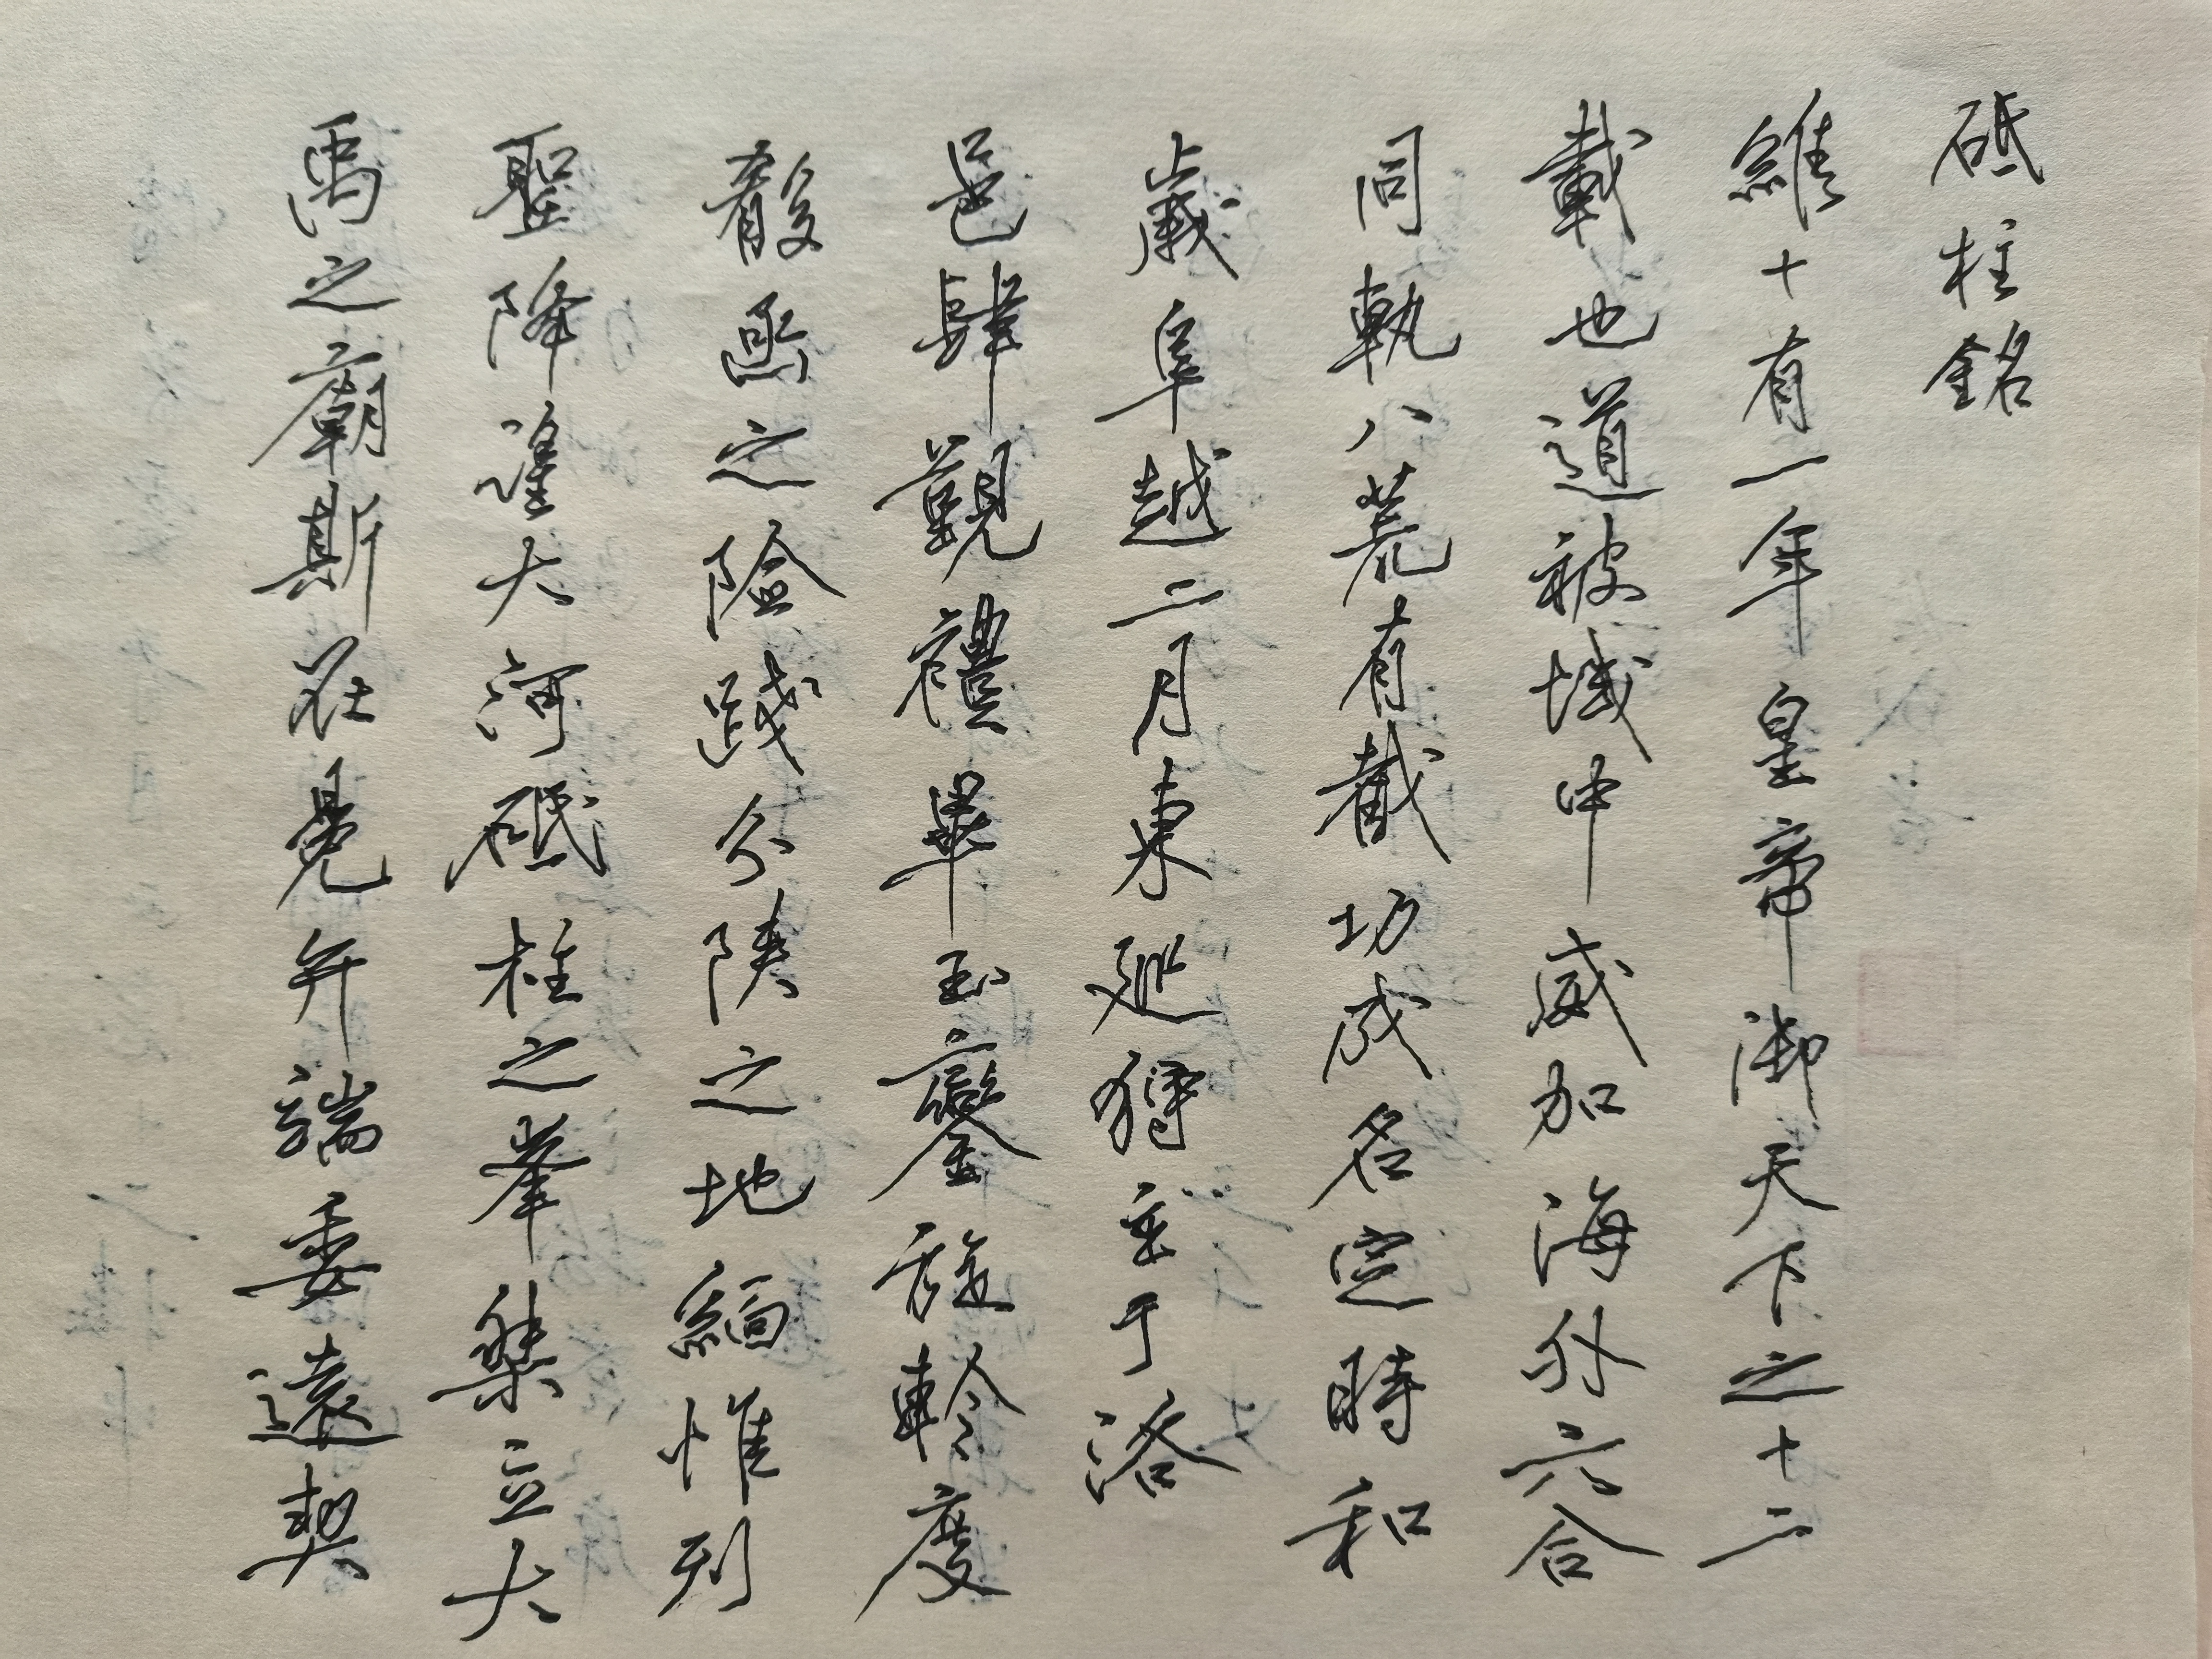 砥柱銘
維十有一年皇帝御天下之十二
載也道被域中威加海外六合
同軌八荒有截功成名定時和
歲阜越二月東巡狩至于洛
邑肆覲禮畢玉鑾旋軫度
殽函之險踐分陝之地緬惟列
聖降望大河砥柱之峯桀立大
禹之廟斯在冕弁端委遠契